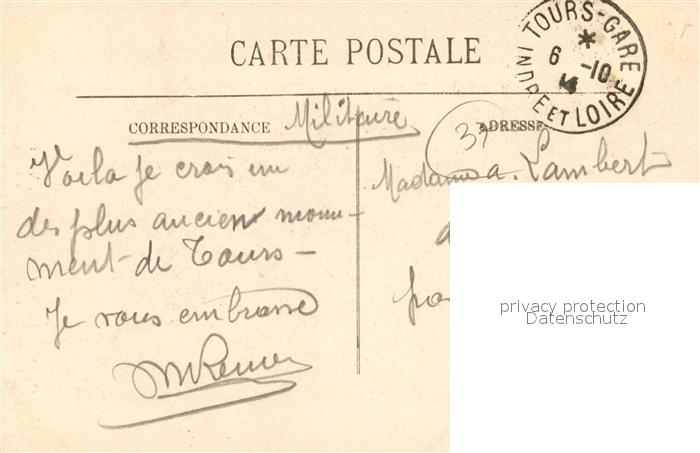 CARTE POSTALE
TOURS-GARE
6 -10
14
INDRE ET LOIRE
CORRESPONDANCE Militaire
ADRESSE
37
Voila je crois un
des plus ancien monu-
ment de Tours -
Je vous embrasse
Madame a. Lambert
privacy protection
Datenschutz